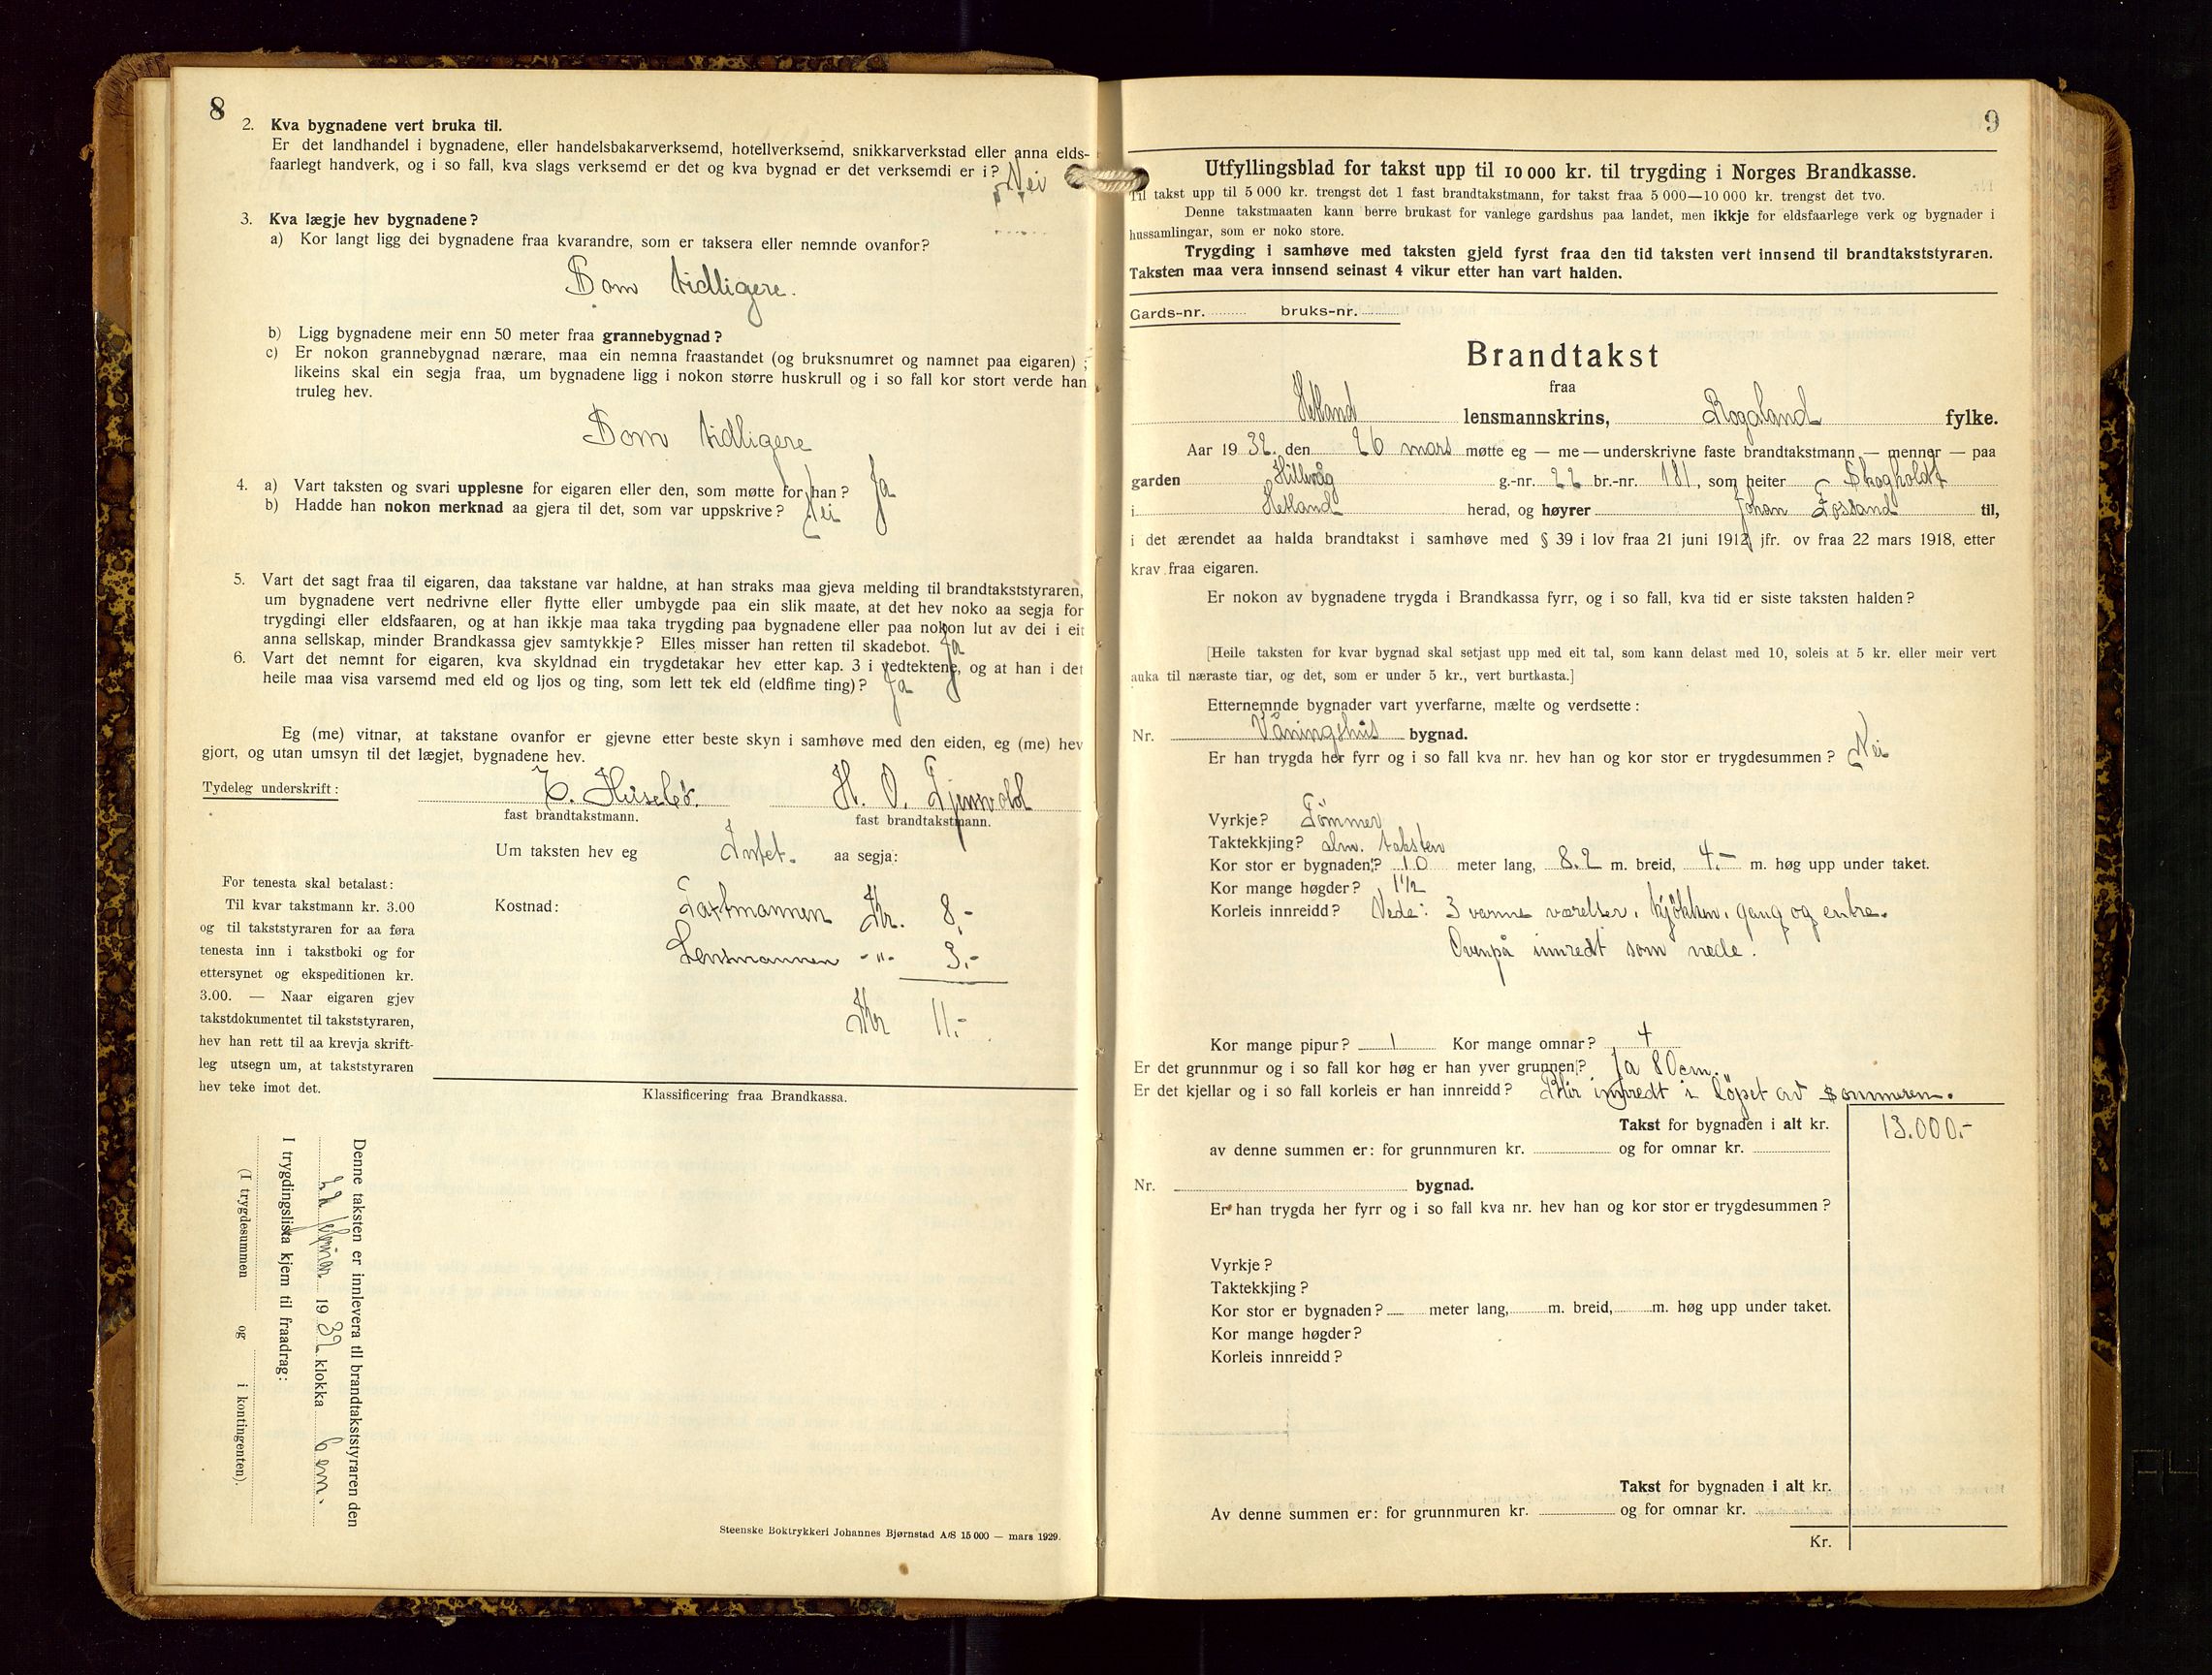 8
2. Kva bygnadene vert bruka til.
Er det landhandel i bygnadene, eller handelsbakarverksemd, hotellverksemd, snikkarverkstad eller anna elds-
faarlegt handverk, og i so fall, kva slags verksemd er det og kva bygnad er det verksemdi er i? Nei
3. Kva lægje hev bygnadene?
a) Kor langt ligg dei bygnadene fraa kvarandre, som er taksera eller nemnde ovanfor?
Som tidligere.
b) Ligg bygnadene meir enn 50 meter fraa grannebygnad?
c) Er nokon grannebygnad nærare, maa ein nemna fraastandet (og bruksnumret og namnet paa eigaren);
likeins skal ein segja fraa, um bygnadene ligg i nokon større huskrull og i so fall kor stort verde han
truleg hev.
Som tidligere
4. a) Vart taksten og svari upplesne for eigaren eller den, som møtte for han? Ja
b) Hadde han nokon merknad aa gjera til det, som var uppskrive? Nei
5. Vart det sagt fraa til eigaren, daa takstane var haldne, at han straks maa gjeva melding til brandtakststyraren,
um bygnadene vert nedrivne eller flytte eller umbygde paa ein slik maate, at det hev noko aa segja for
trygdingi eller eldsfaaren, og at han ikkje maa taka trygding paa bygnadene eller paa nokon lut av dei i eit
anna sellskap, minder Brandkassa gjev samtykkje? Elles misser han retten til skadebot. Ja
6. Vart det nemnt for eigaren, kva skyldnad ein trygdetakar hev etter kap. 3 i vedtektene, og at han i det
heile maa visa varsemd med eld og ljos og ting, som lett tek eld (eldfime ting)? Ja
Eg (me) vitnar, at takstane ovanfor er gjevne etter beste skyn i samhøve med den eiden, eg (me) hev
gjort, og utan umsyn til det lægjet, bygnadene hev.
Tydeleg underskrift: H. O.
fast brandtakstmann. fast brandtakstmann.
Um taksten hev eg Intet. aa segja:
For tenesta skal betalast:
Til kvar takstmann kr. 3.00
og til takststyraren for aa føra
tenesta inn i takstboki og for
ettersynet og ekspeditionen kr.
3.00. — Naar eigaren gjev
takstdokumentet til takststyraren,
hev han rett til aa krevja skrift-
leg utsegn um, at takststyraren
hev teke imot det.
Kostnad: Taxtmannen Kr. 8,-
Lensmannen -"- 3,-
Kr 11,-
Klassificering fraa Brandkassa.
Denne taksten er innlevera til brandtakststyraren den
19 32 klokka 6 em.
I trygdingslista kjem til fraadrag:
(I trygdesummen og i kontingenten).
Steenske Boktrykkeri Johannes Bjørnstad A/S 15 000 — mars 1929.
9
Utfyllingsblad for takst upp til 10 000 kr. til trygding i Norges Brandkasse.
Til takst upp til 5 000 kr. trengst det 1 fast brandtakstmann, for takst fraa 5 000—10 000 kr. trengst det tvo.
Denne takstmaaten kann berre brukast for vanlege gardshus paa landet, men ikkje for eldsfaarlege verk og bygnader i
hussamlingar, som er noko store.
Trygding i samhøve med taksten gjeld fyrst fraa den tid taksten vert innsend til brandtakststyraren.
Taksten maa vera innsend seinast 4 vikur etter han vart halden.
Gards-nr. bruks-nr.
Brandtakst
fraa
Hetland lensmannskrins, Rogaland fylke.
Aar 19 32 den 26 mars møtte eg — me — underskrivne faste brandtakstmann — menner — paa
garden Hillevåg g.-nr. 22 br.-nr. 181, som heiter Skogholdt
i Hetland herad, og høyrer Johan til,
i det ærendet aa halda brandtakst i samhøve med § 39 i lov fraa 21 juni 1912, jfr. ov fraa 22 mars 1918, etter
krav fraa eigaren.
Er nokon av bygnadene trygda i Brandkassa fyrr, og i so fall, kva tid er siste taksten halden?
[Heile taksten for kvar bygnad skal setjast upp med eit tal, som kann delast med 10, soleis at 5 kr. eller meir vert
auka til næraste tiar, og det, som er under 5 kr., vert burtkasta.]
Etternemnde bygnader vart yverfarne, mælte og verdsette:
Nr. Våningshus bygnad.
Er han trygda her fyrr og i so fall kva nr. hev han og kor stor er trygdesummen? Nei
Vyrkje? Tømmer
Taktekkjing? alm. taksten
Kor stor er bygnaden? 10 meter lang, 8.2 m. breid, 4.- m. høg upp under taket.
Kor mange høgder? 1 1/2
Korleis innreidd? Nede: 3 varme værelser, kjøkken, gang og entre.
Ovenpå innredt som nede.
Kor mange pipur? 1 Kor mange omnar? 4
Er det grunnmur og i so fall kor høg er han yver grunnen? Ja 80 cm.
Er det kjellar og i so fall korleis er han innreidd? Blir innredt i løpet av sommeren.
Takst for bygnaden i alt kr. 13.000.-
av denne summen er: for grunnmuren kr. og for omnar kr.
Nr. bygnad.
Er han trygda her fyrr og i so fall kva nr. hev han og kor stor er trygdesummen?
Vyrkje?
Taktekkjing?
Kor stor er bygnaden? meter lang, m. breid, m. høg upp under taket.
Kor mange høgder?
Korleis innreidd?
Takst for bygnaden i alt kr.
Av denne summen er: for grunnmuren kr. og for omnar kr.
Kr.